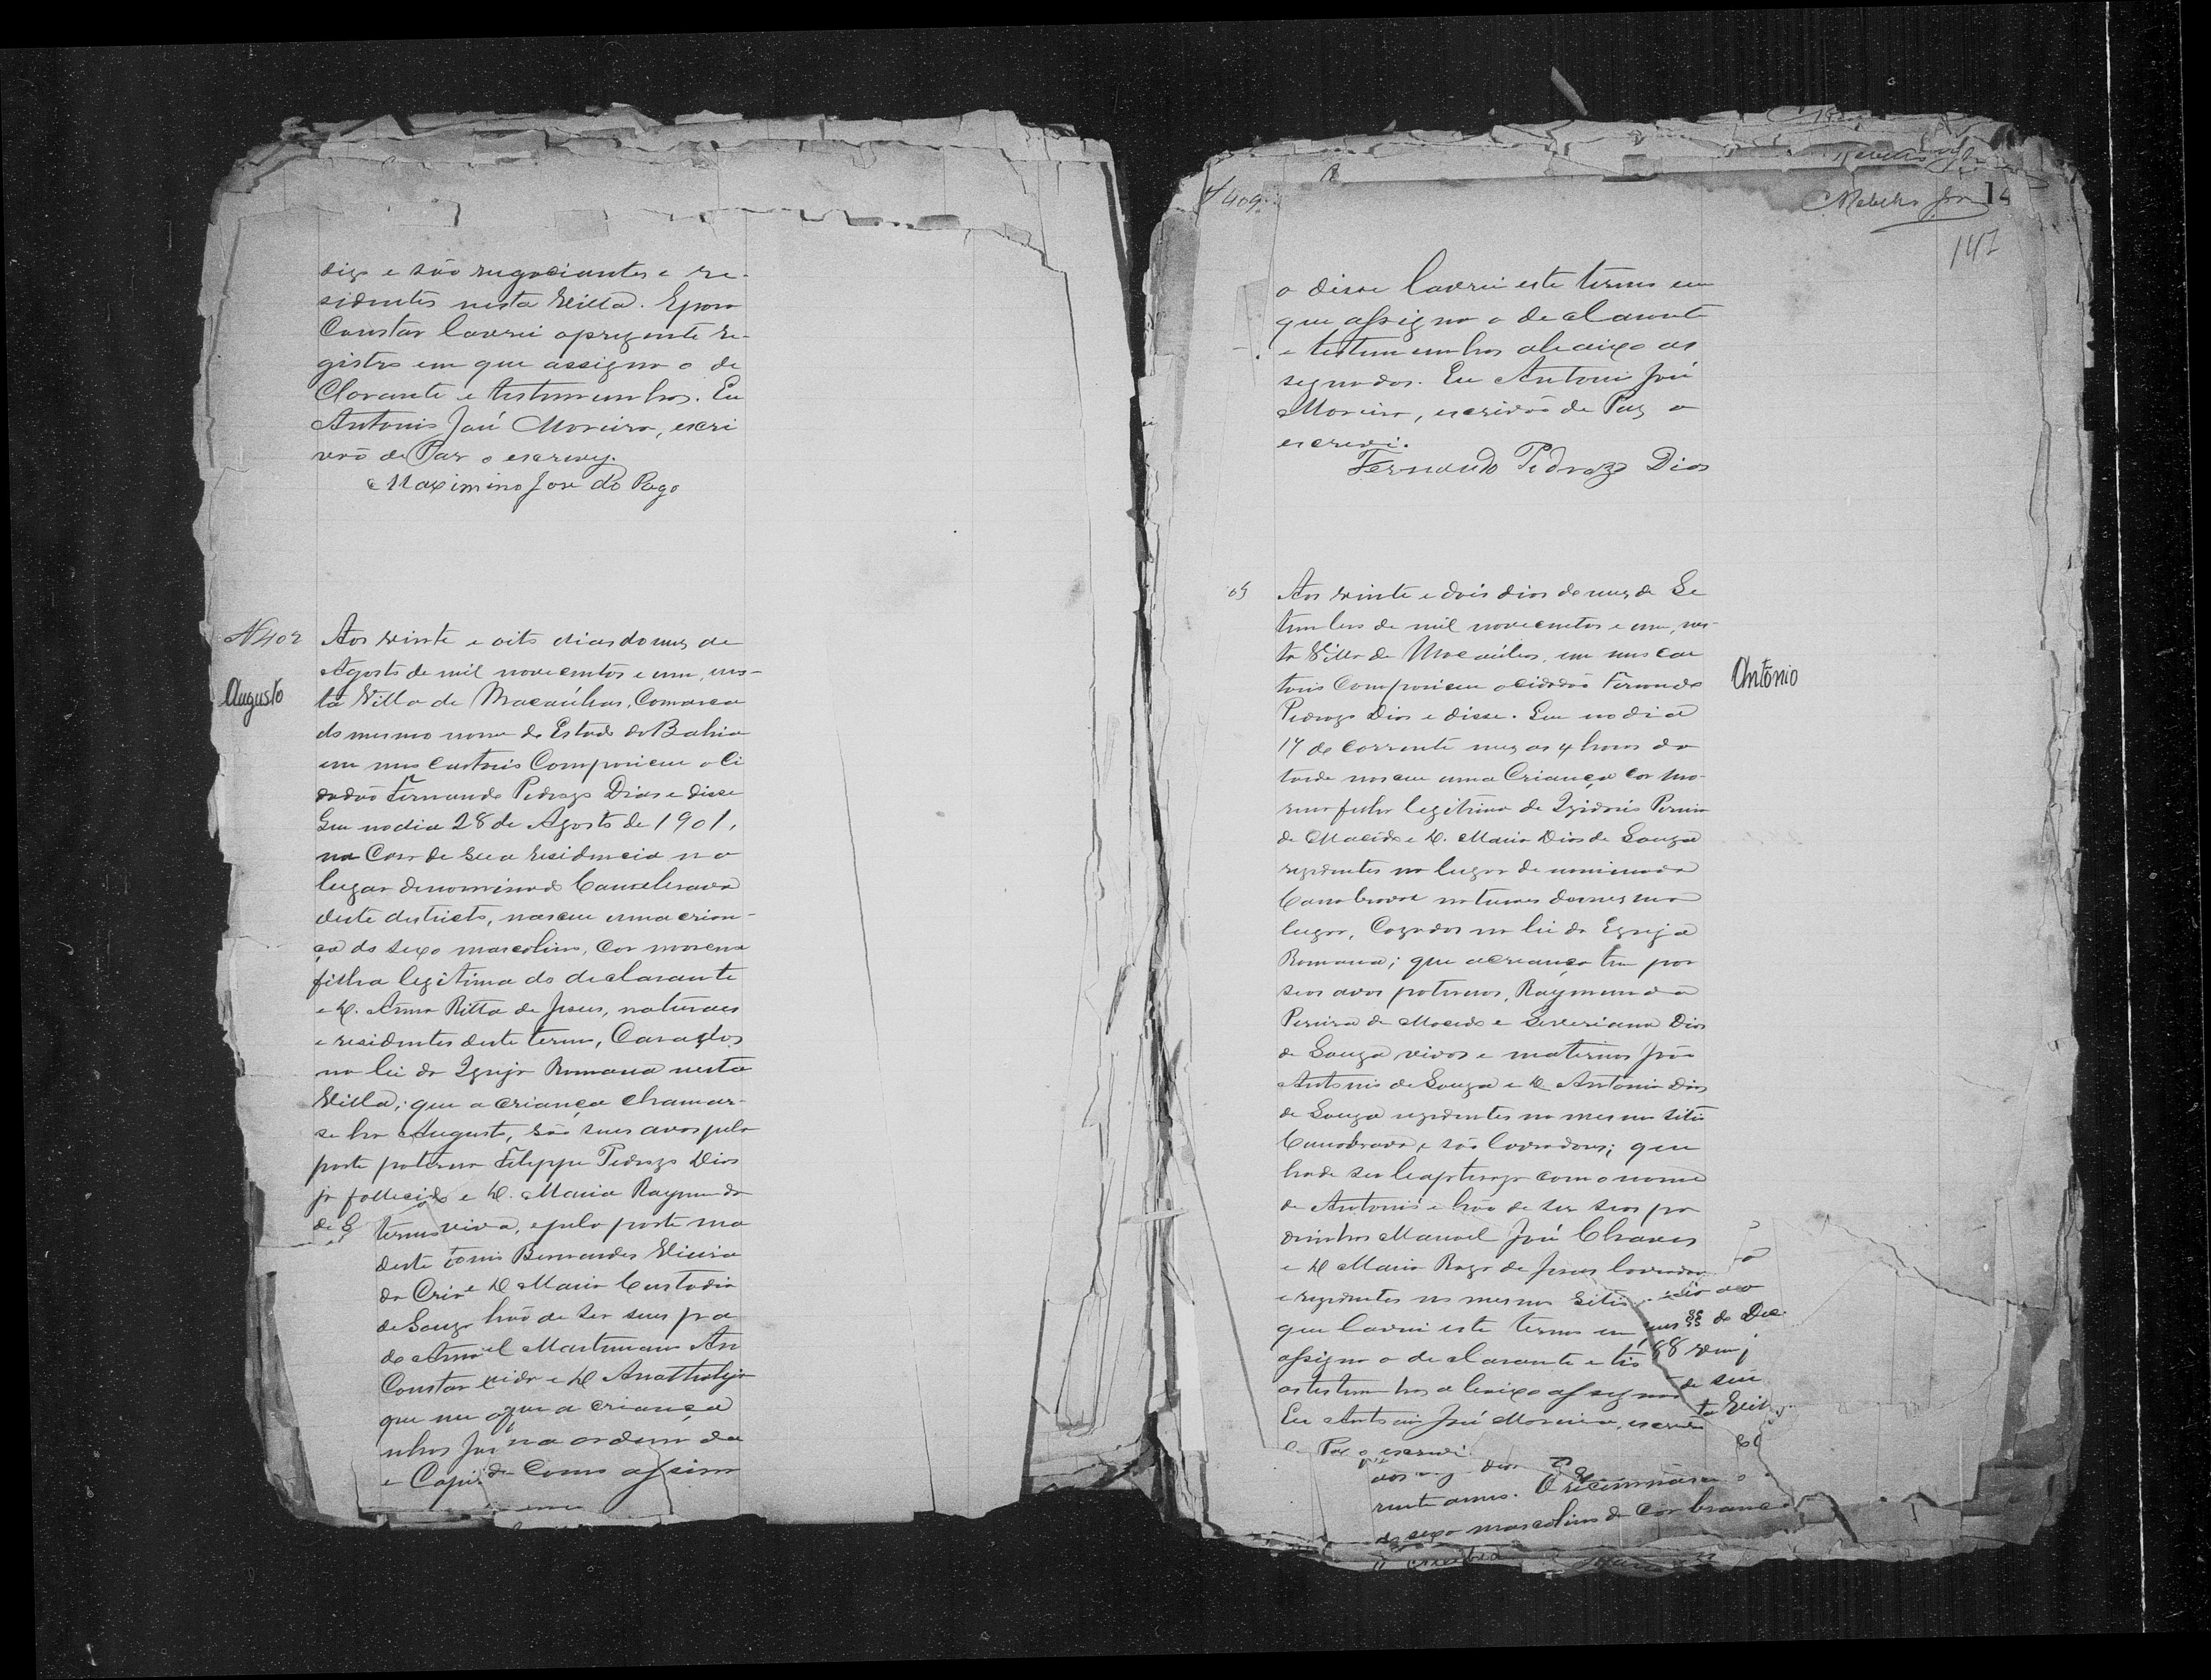 digo e são negociantes e re-
sidentes nesta Villa. E para
Constar lavrei o prezente re-
gistro em que assigna o de
Clarante e testemunhas. Eu
Antonio José Moreira, escri
vão de Paz o escrevy.
Maximino Jose do Rego
N 402
Augusto
Aos vinte e oito dias do mez de
Agosto de mil novecentos e um, nes-
ta Villa de Macaúbas, Comarca
do mesmo nome do Estado da Bahia
em meu Cartorio Compareceu o Ci
dadão Fernando Pedrozo Dias e disse
Que no dia 28 de Agosto de 1901,
na Casa de sua residencia no
lugar denominado Cannabrava
deste districto, nasceu uma crian-
ça do sexo mascolino, Cor morena
filha legitima do declarante
e D. Anna Ritta de Jesus, naturaes
e residentes deste termo, Casados
na lei da Igreja Romana nesta
Villa; que a criança chamar-
se ha Augusto, são seus avos pela
parte paterna Felippe Pedrozo Dias
ja fallecido e D. Maria Raymunda
de S
terna viva, e pela parte ma
deste tonio Bernardes Vieira
da Cria e D Maria Custodia
de Souza hão de ser seus pa
de Anna el Martiniano An
Constar cida e D Anatholija
que me o que a criança
nhos Jos na ordem da
e Capi de Como assim
N 409
Rebello Jor
14
147
o disse lavrei este termo em
que assigna o declarante
e testemunhas abaixo as
segnados. Eu Antonio José
Moreira, escrivão de Paz o
escrevi.
Fernando Pedrozo Dias
03
Antônio
Aos vinte e dois dias do mez de Se
tembro de mil novecentos e um, nes-
ta Villa de Macaúbas, em meu Car
torio Compareceu o cidadão Fernando
Pedrozo Dias e disse. Que no dia
17 do corrente mez as 4 horas da
tarde nasceu uma Criança cor mo-
rena filho legitimo de Izidorio Pereira
de Macêdo e D. Maria Dias de Souza
rezidentes no lugar denominado
Cannabrava naturaes do mesmo
lugar, Cazados na lei da Egreja
Romana; que a creança tem por
seos avos paternos, Raymundo
Pereira de Macedo e Severiana Dias
de Souza vivos e maternos João
Antonio de Souza e D Antônia Dias
de Souza rezidentes no mesmo sitio
Cannabrava, e são lavradores; que
hade ser baptizado com o nome
de Antonio e hão de ser seos pa
drinhos Manoel José Chaves
e D Maria Roza de Jesus lavrador
e rezidentes no mesmo Sitio
que lavrei este termo em
assigna o declarante e
as testemunhas abaixo assignad
Eu Antonio José Moreira, escriv
Paz o escrevi
§§ do Dec.
88
de sui
ta Vill
rente anno. O recemnas
do sexo mascolino de Cor branca